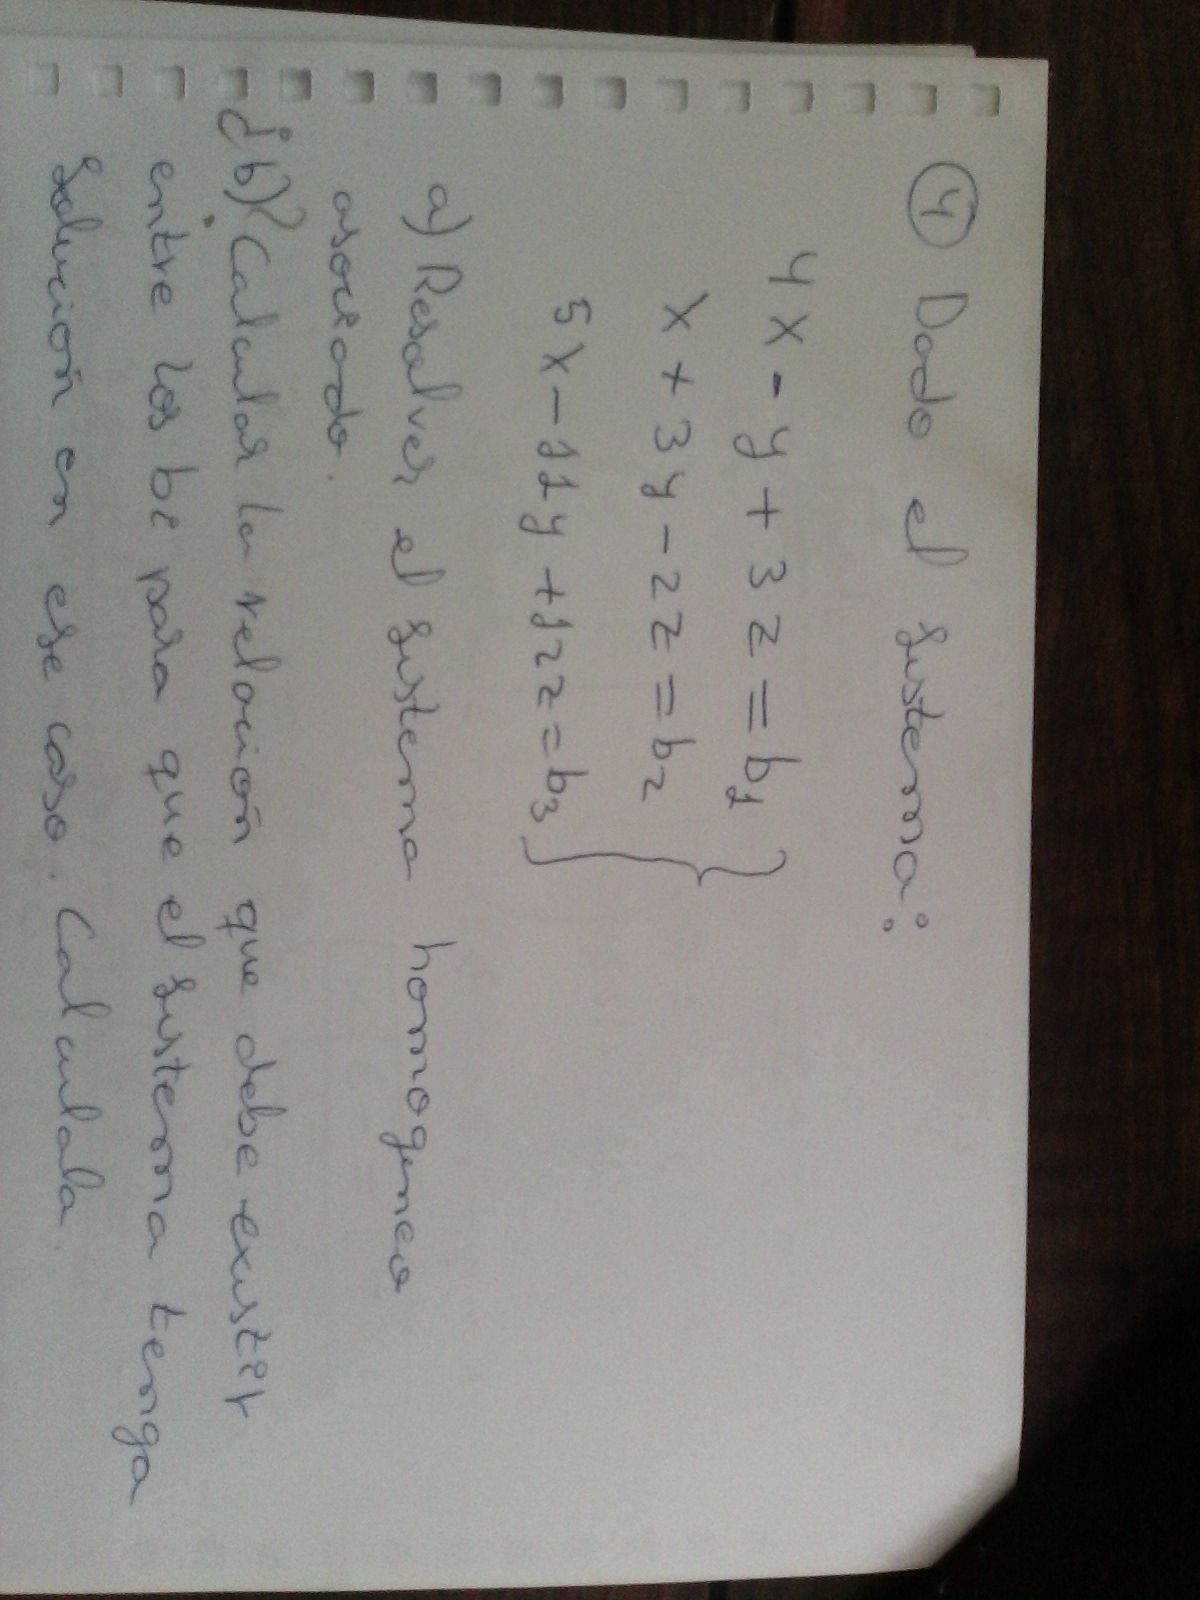 ④ Dado el sistema:
4x - y + 3z = b1
x + 3y - 2z = b2
5x - 11y + 12z = b3
a) Resolver el sistema homogeneo
asociado.
¿b)? Calcular la relación que debe existir
entre los bi para que el sistema tenga
solución en ese caso. Calculala.